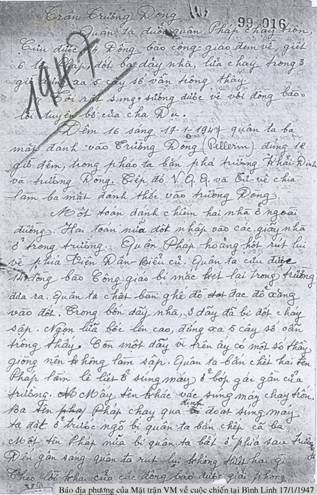 Trận Trường Dòng
99.016
1947
Quân ta đuổi quân Pháp chạy trốn,
Cứu được Đồng bào công giáo đem về, giết
6 đốt ba dãy nhà, lửa cháy trong 3
giờ xa 5 cây số vẫn trông thấy.
Tôi rất sung sướng được về với đồng bào
lời tuyên bố của cha Dụ.
Đêm 16 sang 17-1-1947 quân ta ba
mặt đánh vào Trường Dòng (Pellerin) đúng 12
giờ đêm, trong pháo ta bắn phá trường Khải Định
và trường Dòng. Tiếp đó V.Q.Q và Tự vệ chia
làm ba mặt đánh thốc vào trường Dòng
Một toán đánh chiếm hai nhà ở ngoài
đường. Hai toán nữa đột nhập các dãy nhà
ở trong trường. Quân Pháp hoảng hốt rút lui
về phía Quân ta cứu được
đồng bào Công giáo bị mắc kẹt lại trong trường
đưa ra. Quân ta chất bàn ghế đồ đạc đổ xăng
vào đốt. Trong bốn dãy nhà, 3 dãy đã bị đốt cháy
sập. Ngọn lửa bốc lên cao, đứng xa 5 cây số vẫn
trông thấy. Còn một dãy vì trên ấy có một số thầy
giòng nên không làm sập. Quân ta bắn chết hai tên
Pháp làm lê liệt ổ súng máy ở bót gác gần cửa
trường. Mấy tên khác vác súng máy chạy trốn.
Ba tên Pháp chạy qua đoạt súng máy
ta đặt ở trước ngõ bị quân ta bắn chết cả ba.
Một tên Pháp nữa bị quân ta bắt ở phía sau trường
Đến gần sáng quân ta rút lui không thiệt hại gì
Theo lời khai của các đồng bào được giải phóng
Báo địa phương của Mặt trận VM về cuộc chiến tại Bình Linh 17/1/1947